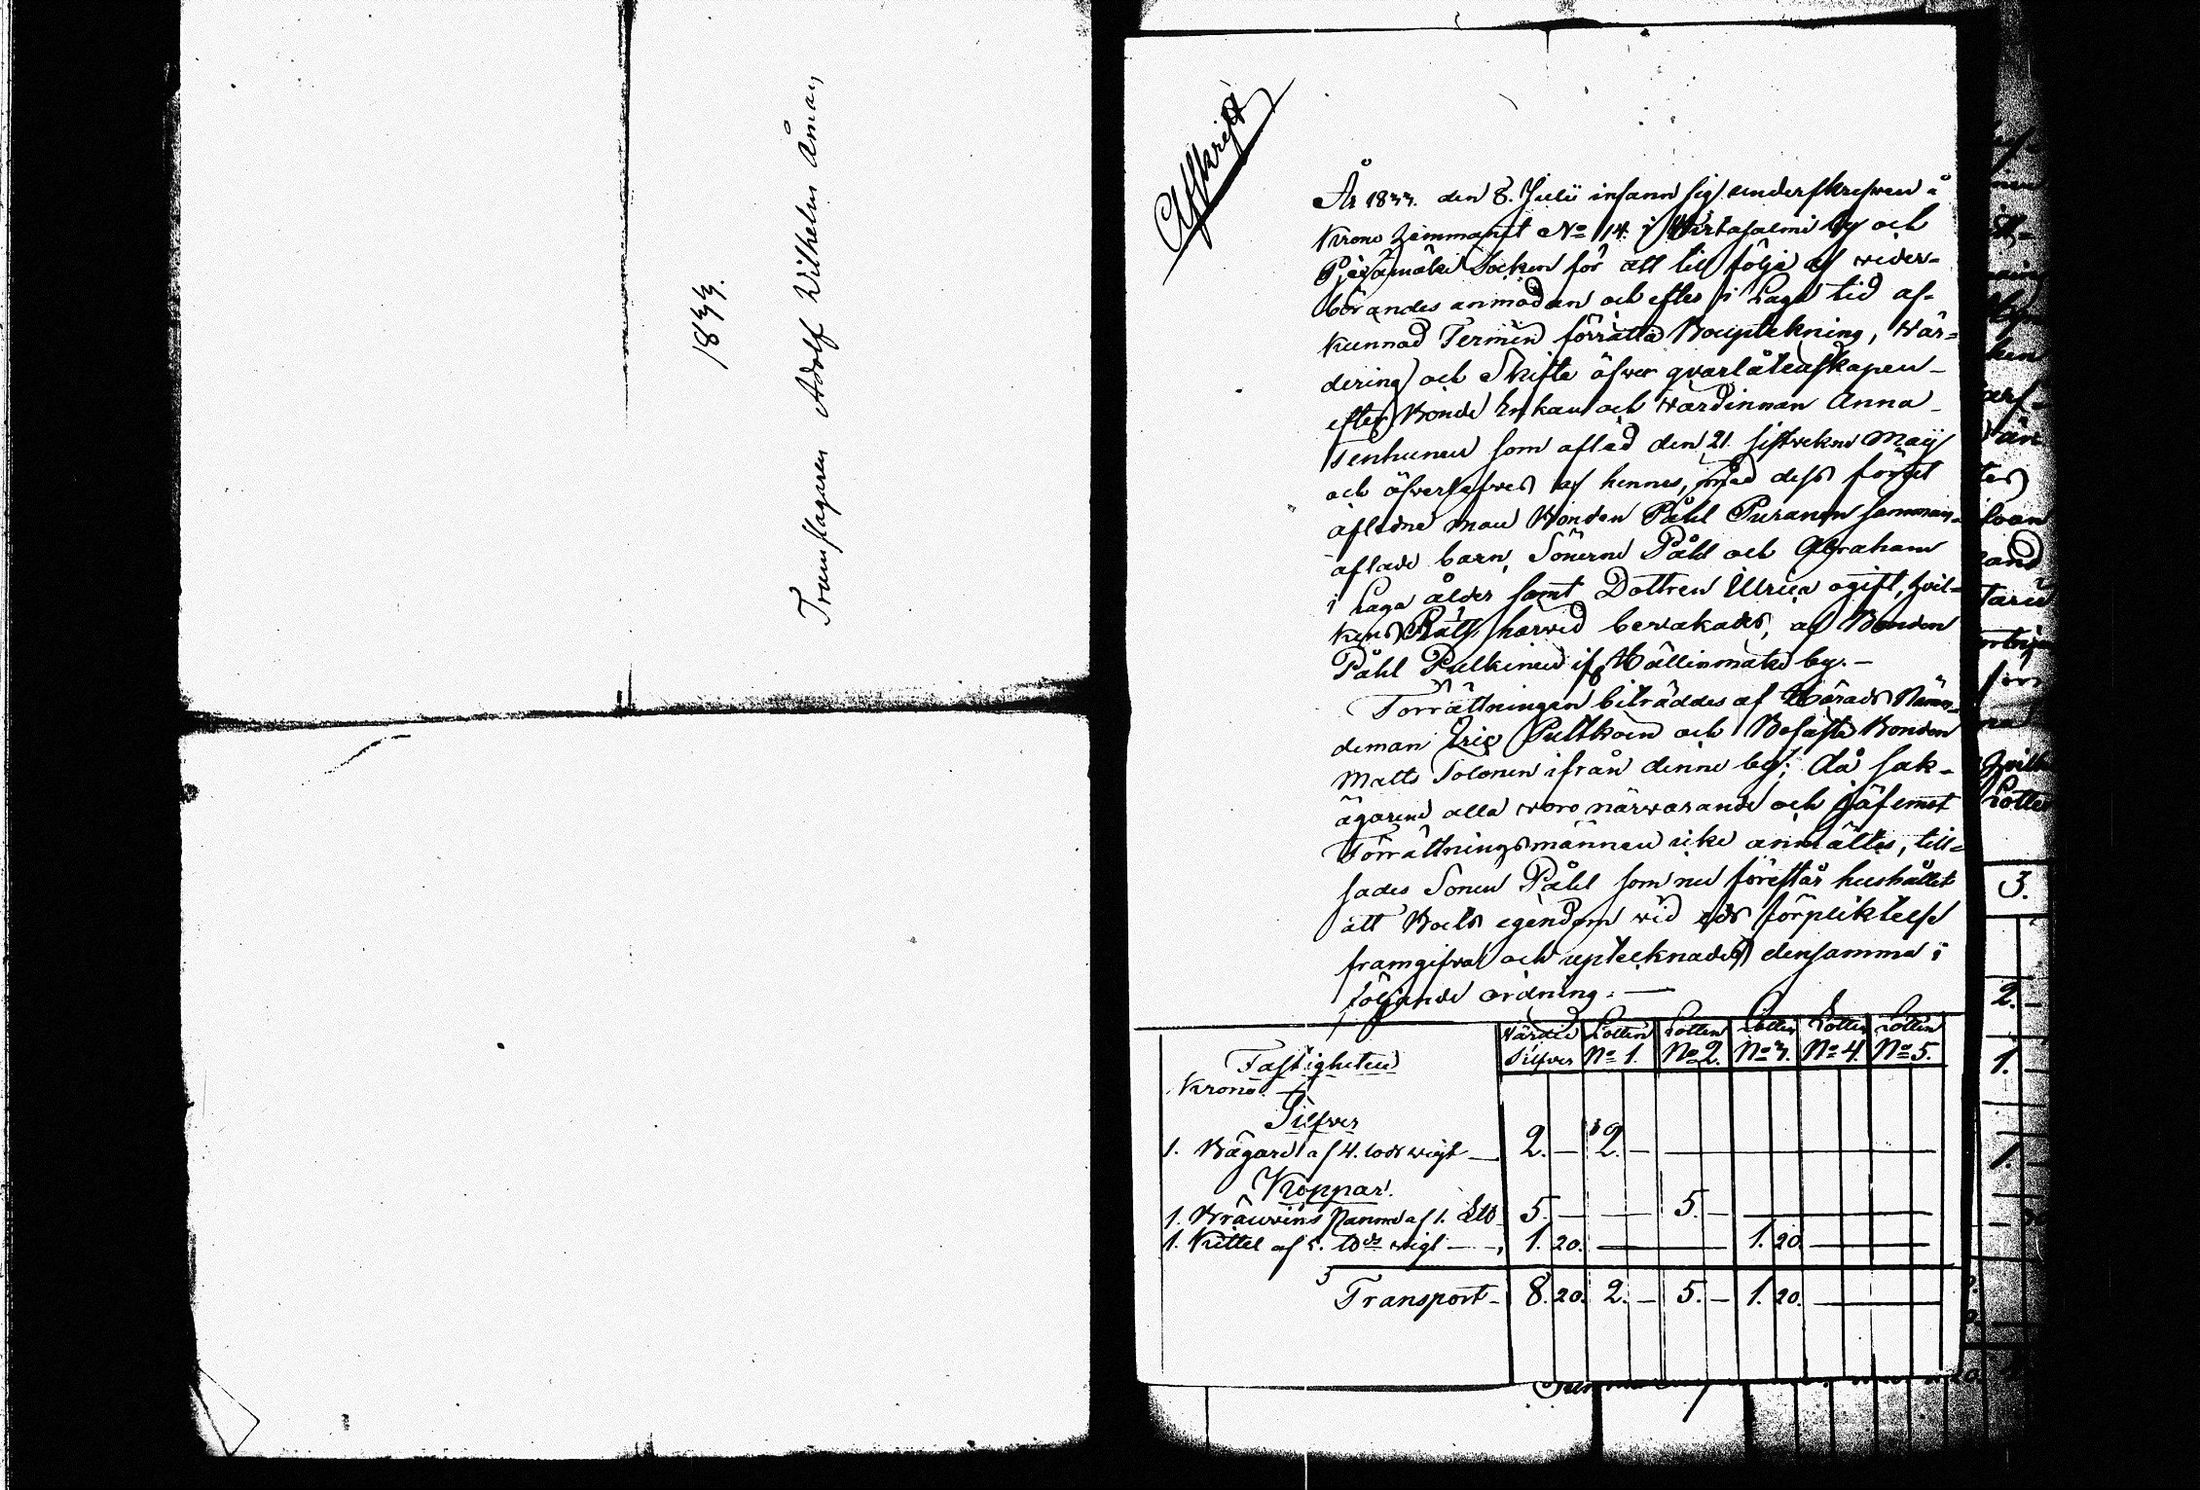 1833.
Trumslagaren Adolf Wilhelm Åman,
Afskrift
År 1833. den 8. Julii infann sig underskrefwen å
Krono hemmanet No 14. i Wirtasalmi by och
Pieksämäki Socken för att till följe af weder-
börandes anmodan och efter i Laga tid af-
kunnad Termin förrätta Bouptekning, Wär-
dering och Skifte öfwer qvarlåtenskapen
efter Bonde Enkan och Wärdinnan Anna
Tenhunen som afled den 21. sistwekne Maij
och öfwerlefwes af hennes, med dess förut
aflidne man Bonden Påhl Puranen samman-
aflade barn, Sönerne Påhl och Abraham
i Laga ålder samt Dottren Ulrica ogift, hvil-
kens Rätt härwid bewakades, af Bonden
Påhl Pulkinen if. Hällinmäki by. —
Förrättningen biträddes af Härads Nämn-
deman Eric Pulkoin och Bofaste Bonden
Matts Tolonen ifrån denne by; då sak-
ägarene alla woro närwarande och jäf emot
Förrättningsmännen icke anmältes, till-
sades Sonen Påhl som nu förestår hushållet
att Boets egendom wid eds förpliktelse
framgifwa och uptecknades densamma i
följande ordning. —
Wärdet Lotten Lotten Lotten Lotten Lotten
Silfver No 1. No 2. No 3. No 4. No 5.
Fastigheten
Krono
Silfver
1. Bägare af 4. lods wigt — 2. — 2. —
Koppar.
1. Bräwins Panna af 1. 5. — 5. —
1. Kittel af 5. wigt — 1. 20. 1. 20.
Transport - 8. 20. 2. — 5. — 1. 20.
3.
2. —
1.
1.